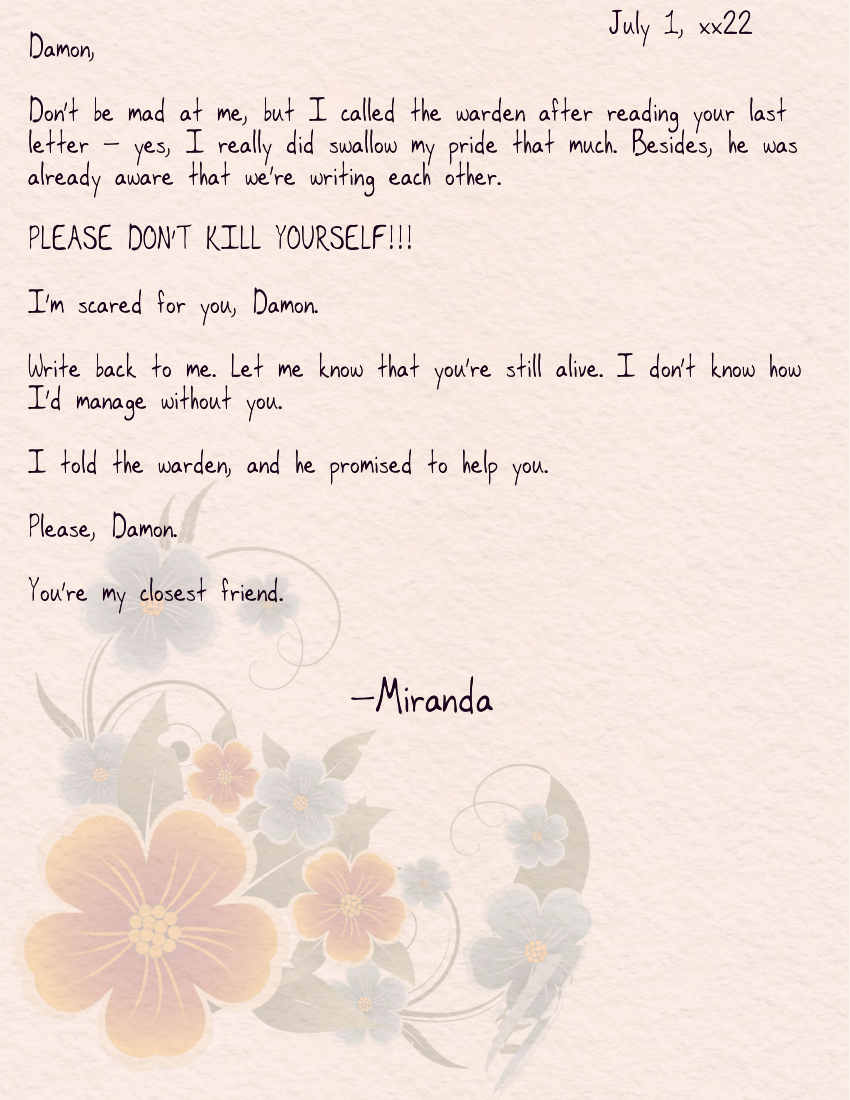 July 1, xx22
Damon,
Don't be mad at me, but I called the warden after reading your last
letter – yes, I really did swallow my pride that much. Besides, he was
already aware that we're writing each other.
PLEASE DON'T KILL YOURSELF!!!
I'm scared for you, Damon.
Write back to me. Let me know that you're still alive. I don't know how
I'd manage without you.
I told the warden, and he promised to help you.
Please, Damon.
You're my closest friend.
–Miranda